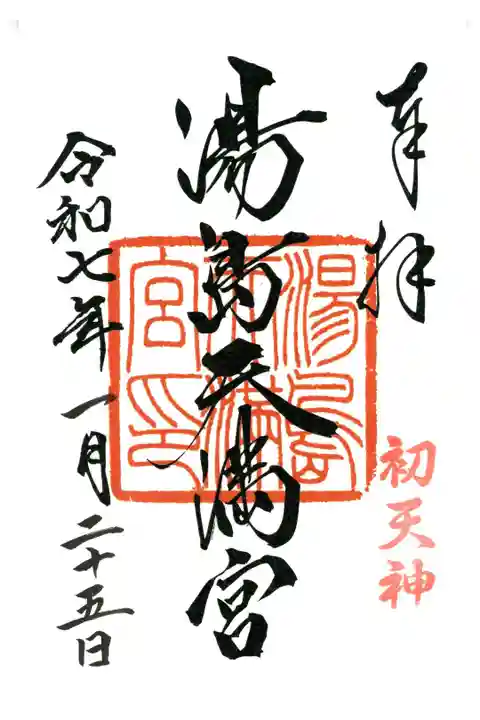 奉拝
初天神
湯島天満宮
湯島天満宮印
令和七年一月二十五日